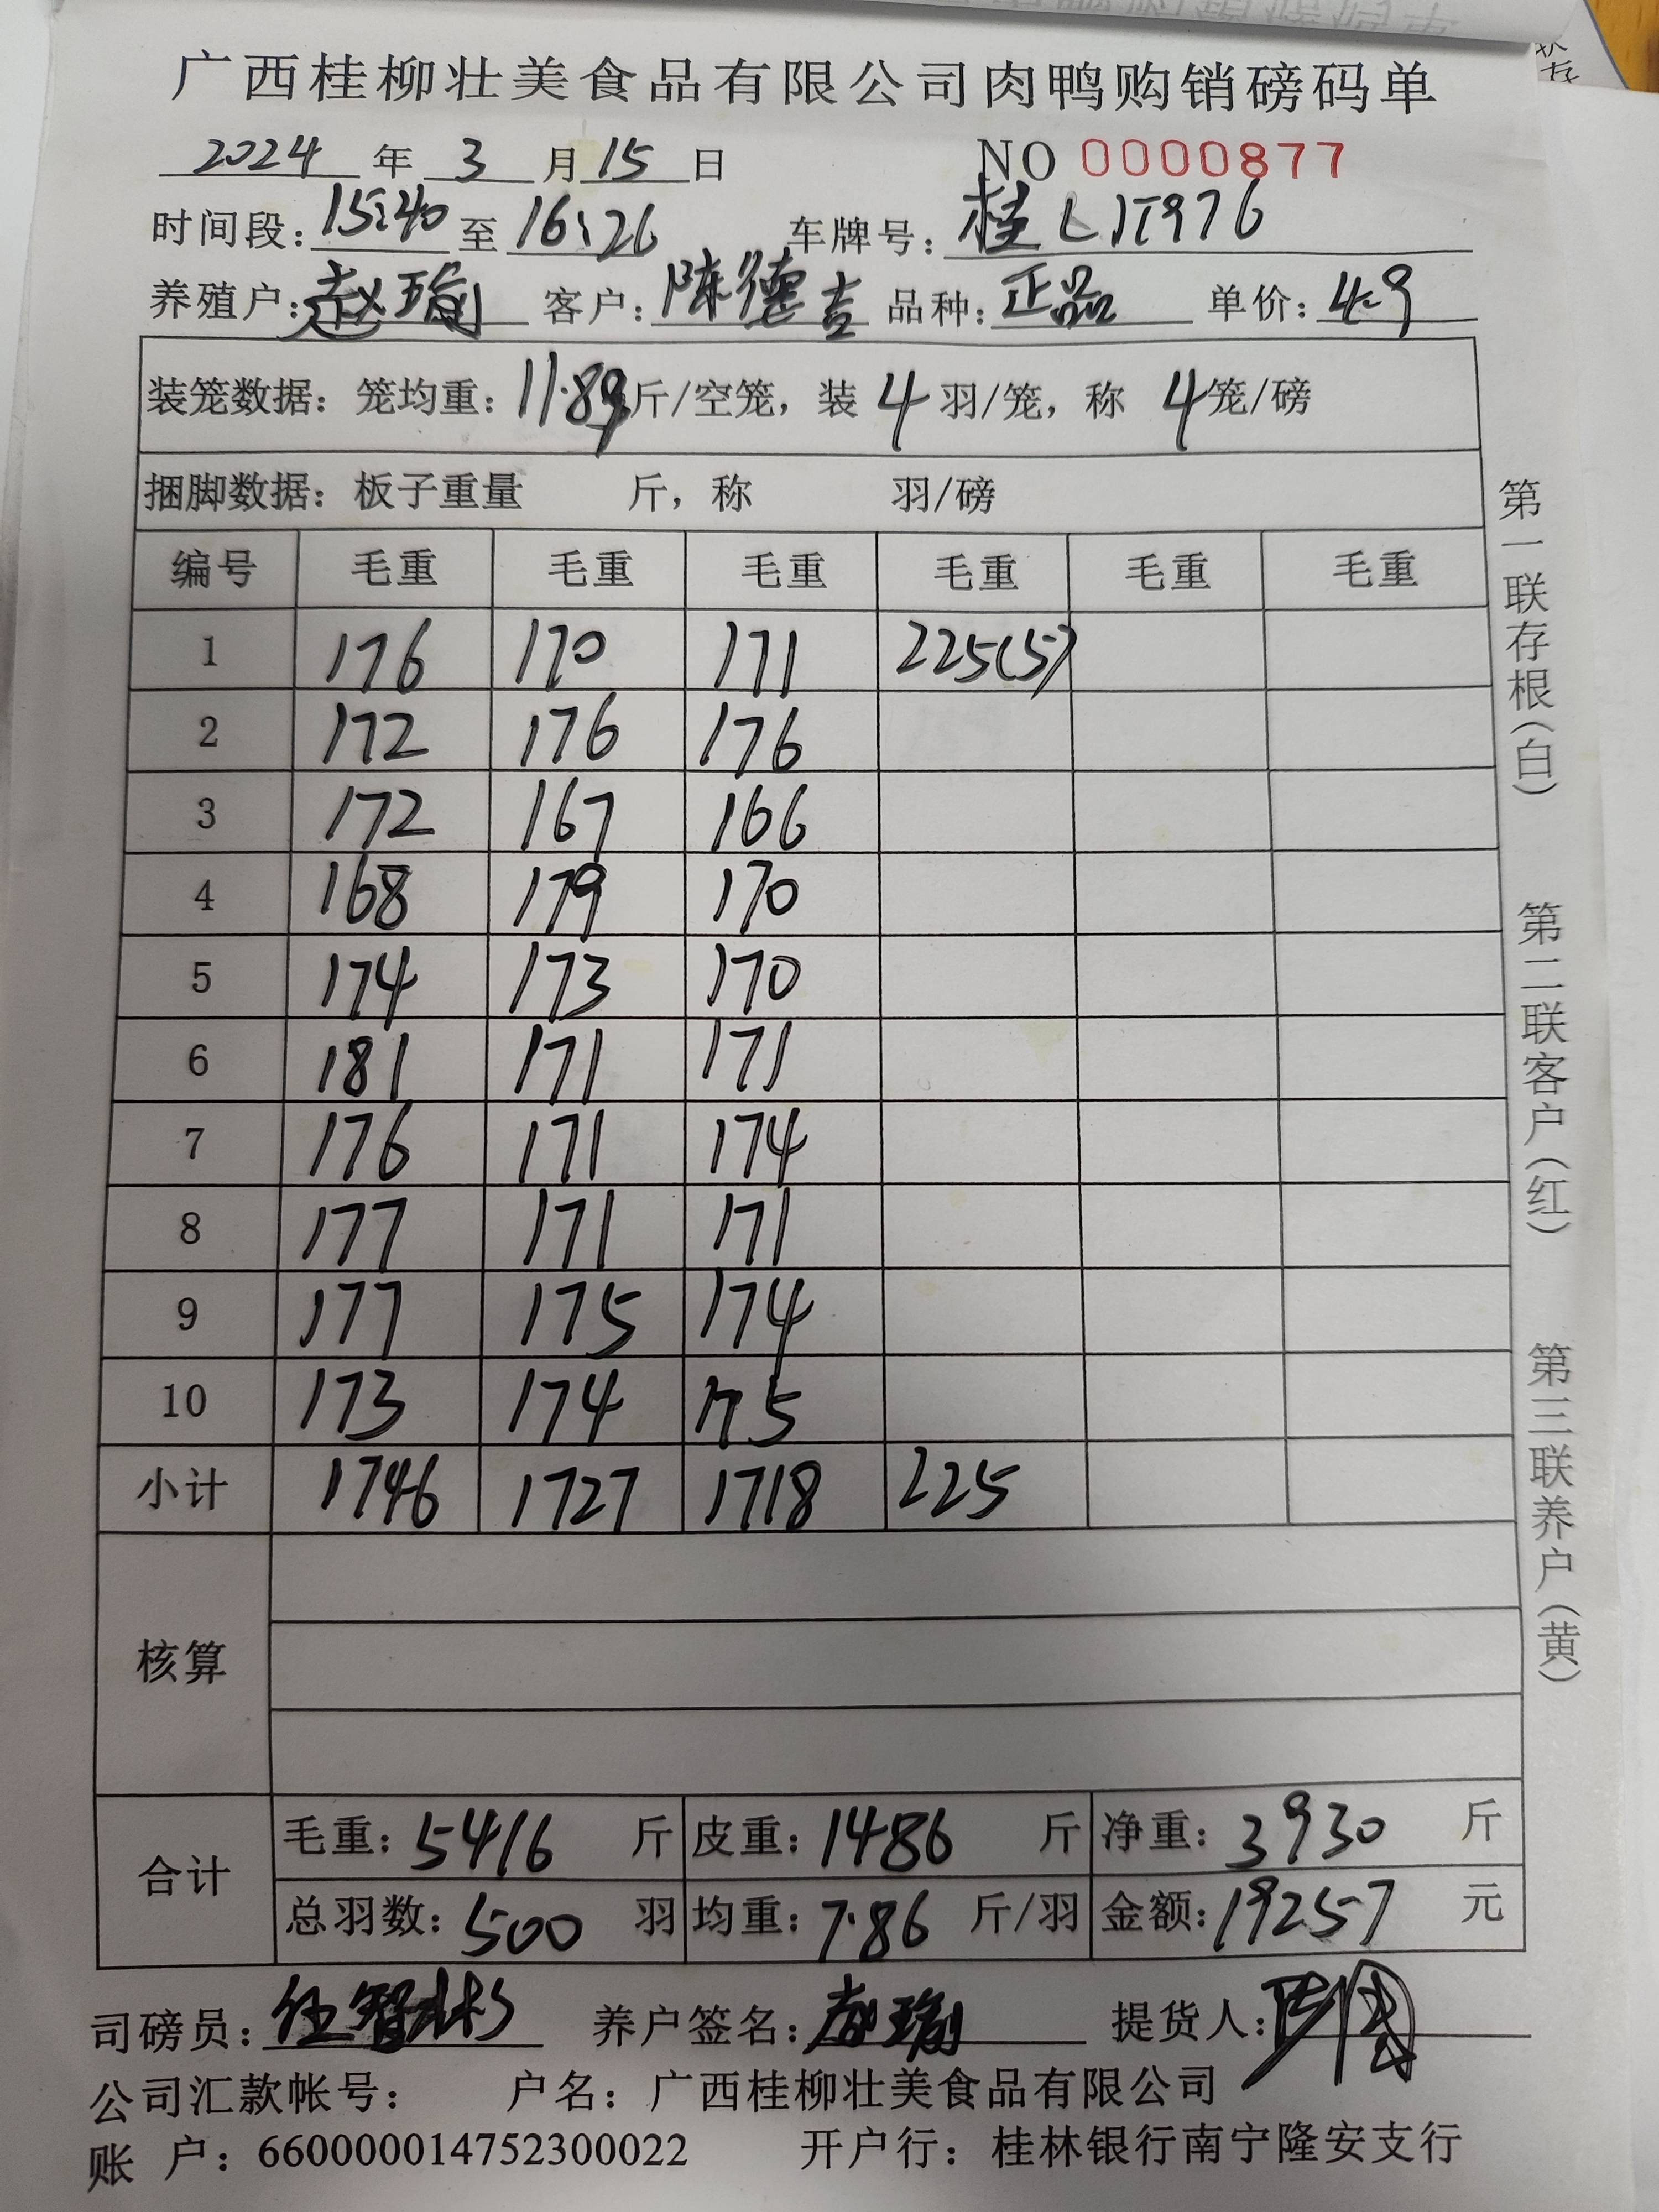 广西桂柳壮美食品有限公司肉鸭购销磅码单
2024 年 3 月 15 日 NO 0000877
时间段: 15:40 至 16:26 车牌号: 桂L
养殖户: 赵瑜 客户: 陈德吉 品种: 正品 单价: 4.9
装笼数据: 笼均重: 11.89 斤/空笼, 装 4 羽/笼, 称 4 笼/磅
捆脚数据: 板子重量 斤, 称 羽/磅
编号 毛重 毛重 毛重 毛重 毛重 毛重
1 176 170 171 225(5)
2 172 176 176
3 172 167 166
4 168 179 170
5 174 173 170
6 181 171 171
7 176 171 174
8 177 171 171
9 177 175 174
10 173 174 175
小计 1746 1727 1718 225
核算
合计 毛重: 5416 斤 皮重: 1486 斤 净重: 3930 斤
总羽数: 500 羽 均重: 7.86 斤/羽 金额: 19257 元
司磅员: 养户签名: 赵瑜 提货人:
公司汇款帐号: 户名: 广西桂柳壮美食品有限公司
账 户: 660000014752300022 开户行: 桂林银行南宁隆安支行
第一联存根(白)
第二联客户(红)
第三联养户(黄)